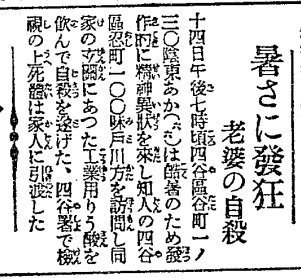 暑さに發狂
老婆の自殺
十四日午後七時頃四谷區谷町一ノ
三〇陰東あか(　)は酷暑のため發
作的に精神異狀を來し知人の四谷
區忍町一〇〇味戸川方を訪問し同
家の玄關にあつた工業用りう酸を
飮んで自殺を遂げた、四谷署で檢
視の上死體は家人に引渡した